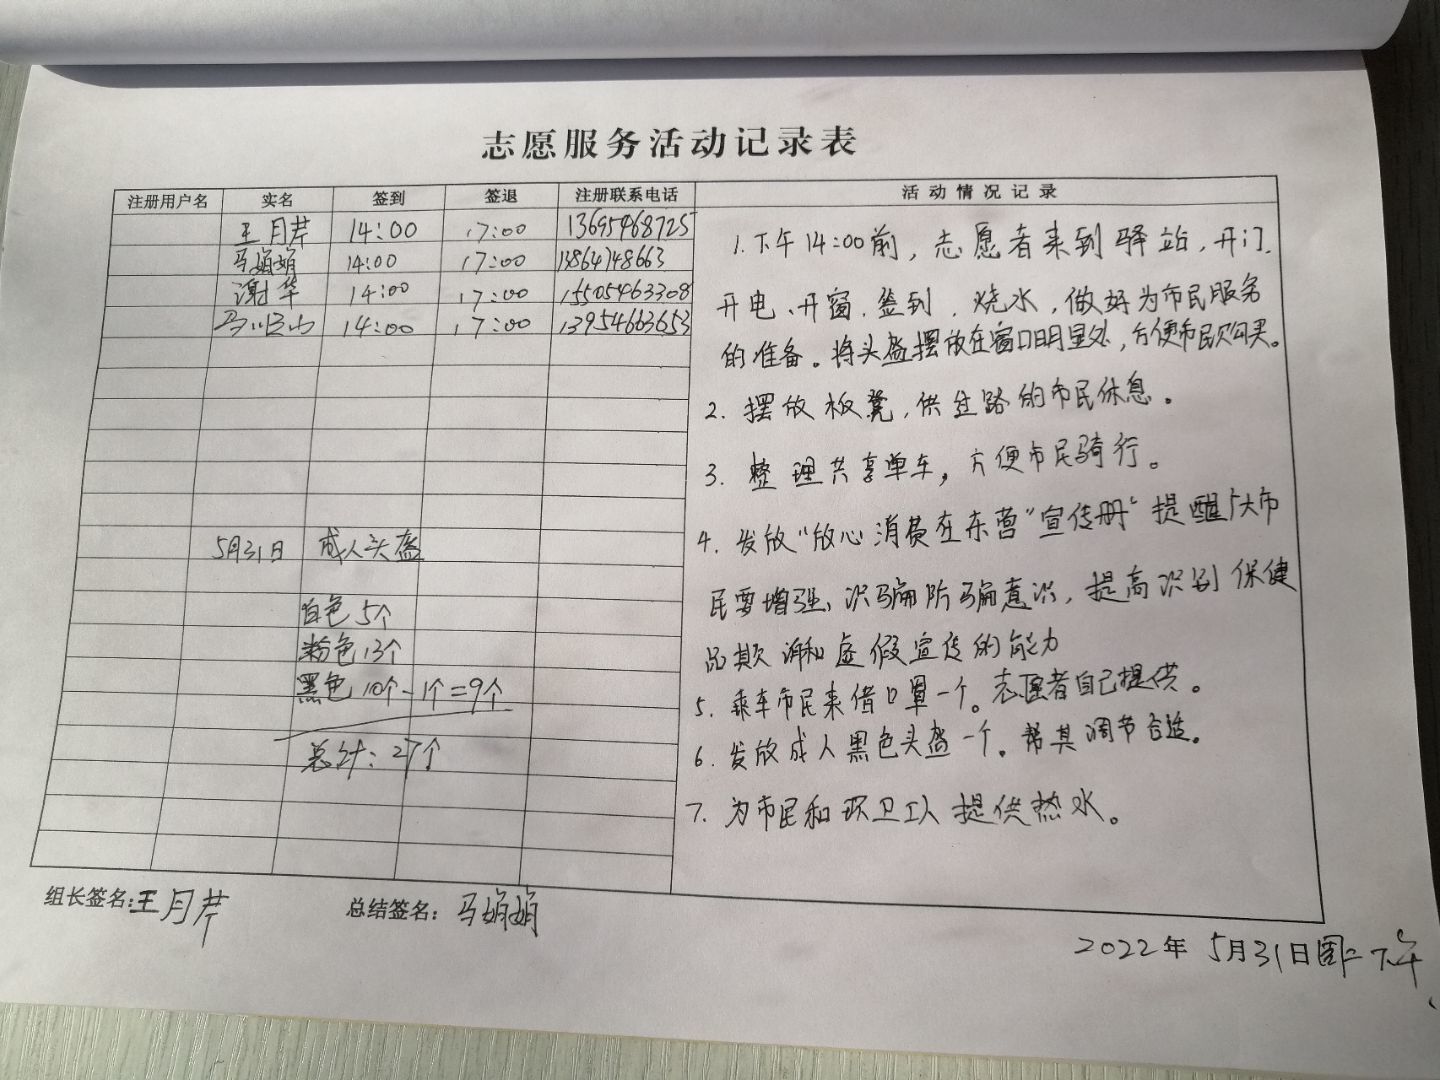 志愿服务活动记录表
注册用户名 实名 签到 签退 注册联系电话 活动情况记录
王月芹 14:00 17:00 13695468725
马娟娟 14:00 17:00 13864748663
谢华 14:00 17:00 15505463308
14:00 17:00 13954663653
5月31日 成人头盔
白色5个
粉色13个
黑色10个-1个=9个
总计:27个
1.下午14:00前,志愿者来到驿站,开门、
开电、开窗、签到、烧水,做好为市民服务
的准备。将头盔摆放在窗口明显处,方便市民购买。
2. 摆放板凳,供过路的市民休息。
3. 整理共享单车,方便市民骑行。
4. 发放“放心消费在东营”宣传册“提醒广大市
民要增强、识骗防骗意识,提高识别保健
品欺诈和虚假宣传的能力
5. 乘车市民来借口罩一个。志愿者自己提供。
6. 发放成人黑色头盔一个。帮其调节合适。
7. 为市民和环卫工人提供热水。
组长签名:王月芹 总结签名:马娟娟
2022年5月31日周二下午